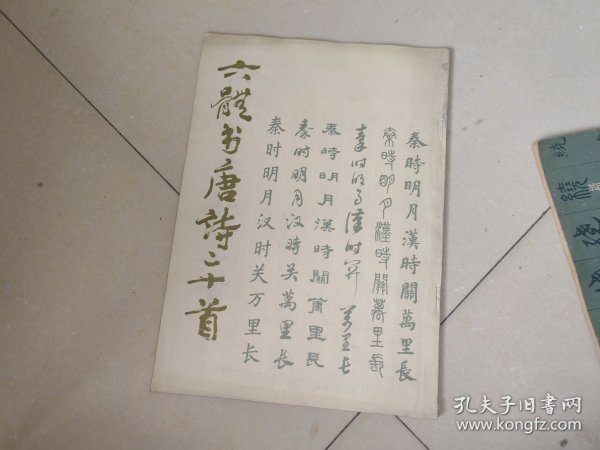 六體书唐詩二十首
秦時明月漢時關萬里長
秦時明月漢時關萬里長
秦时明月漢时關萬里長
秦時明月漢時關萬里長
秦时明月汉時关萬里长
秦时明月汉时关万里长
孔夫子旧书网
www.kongfz.com